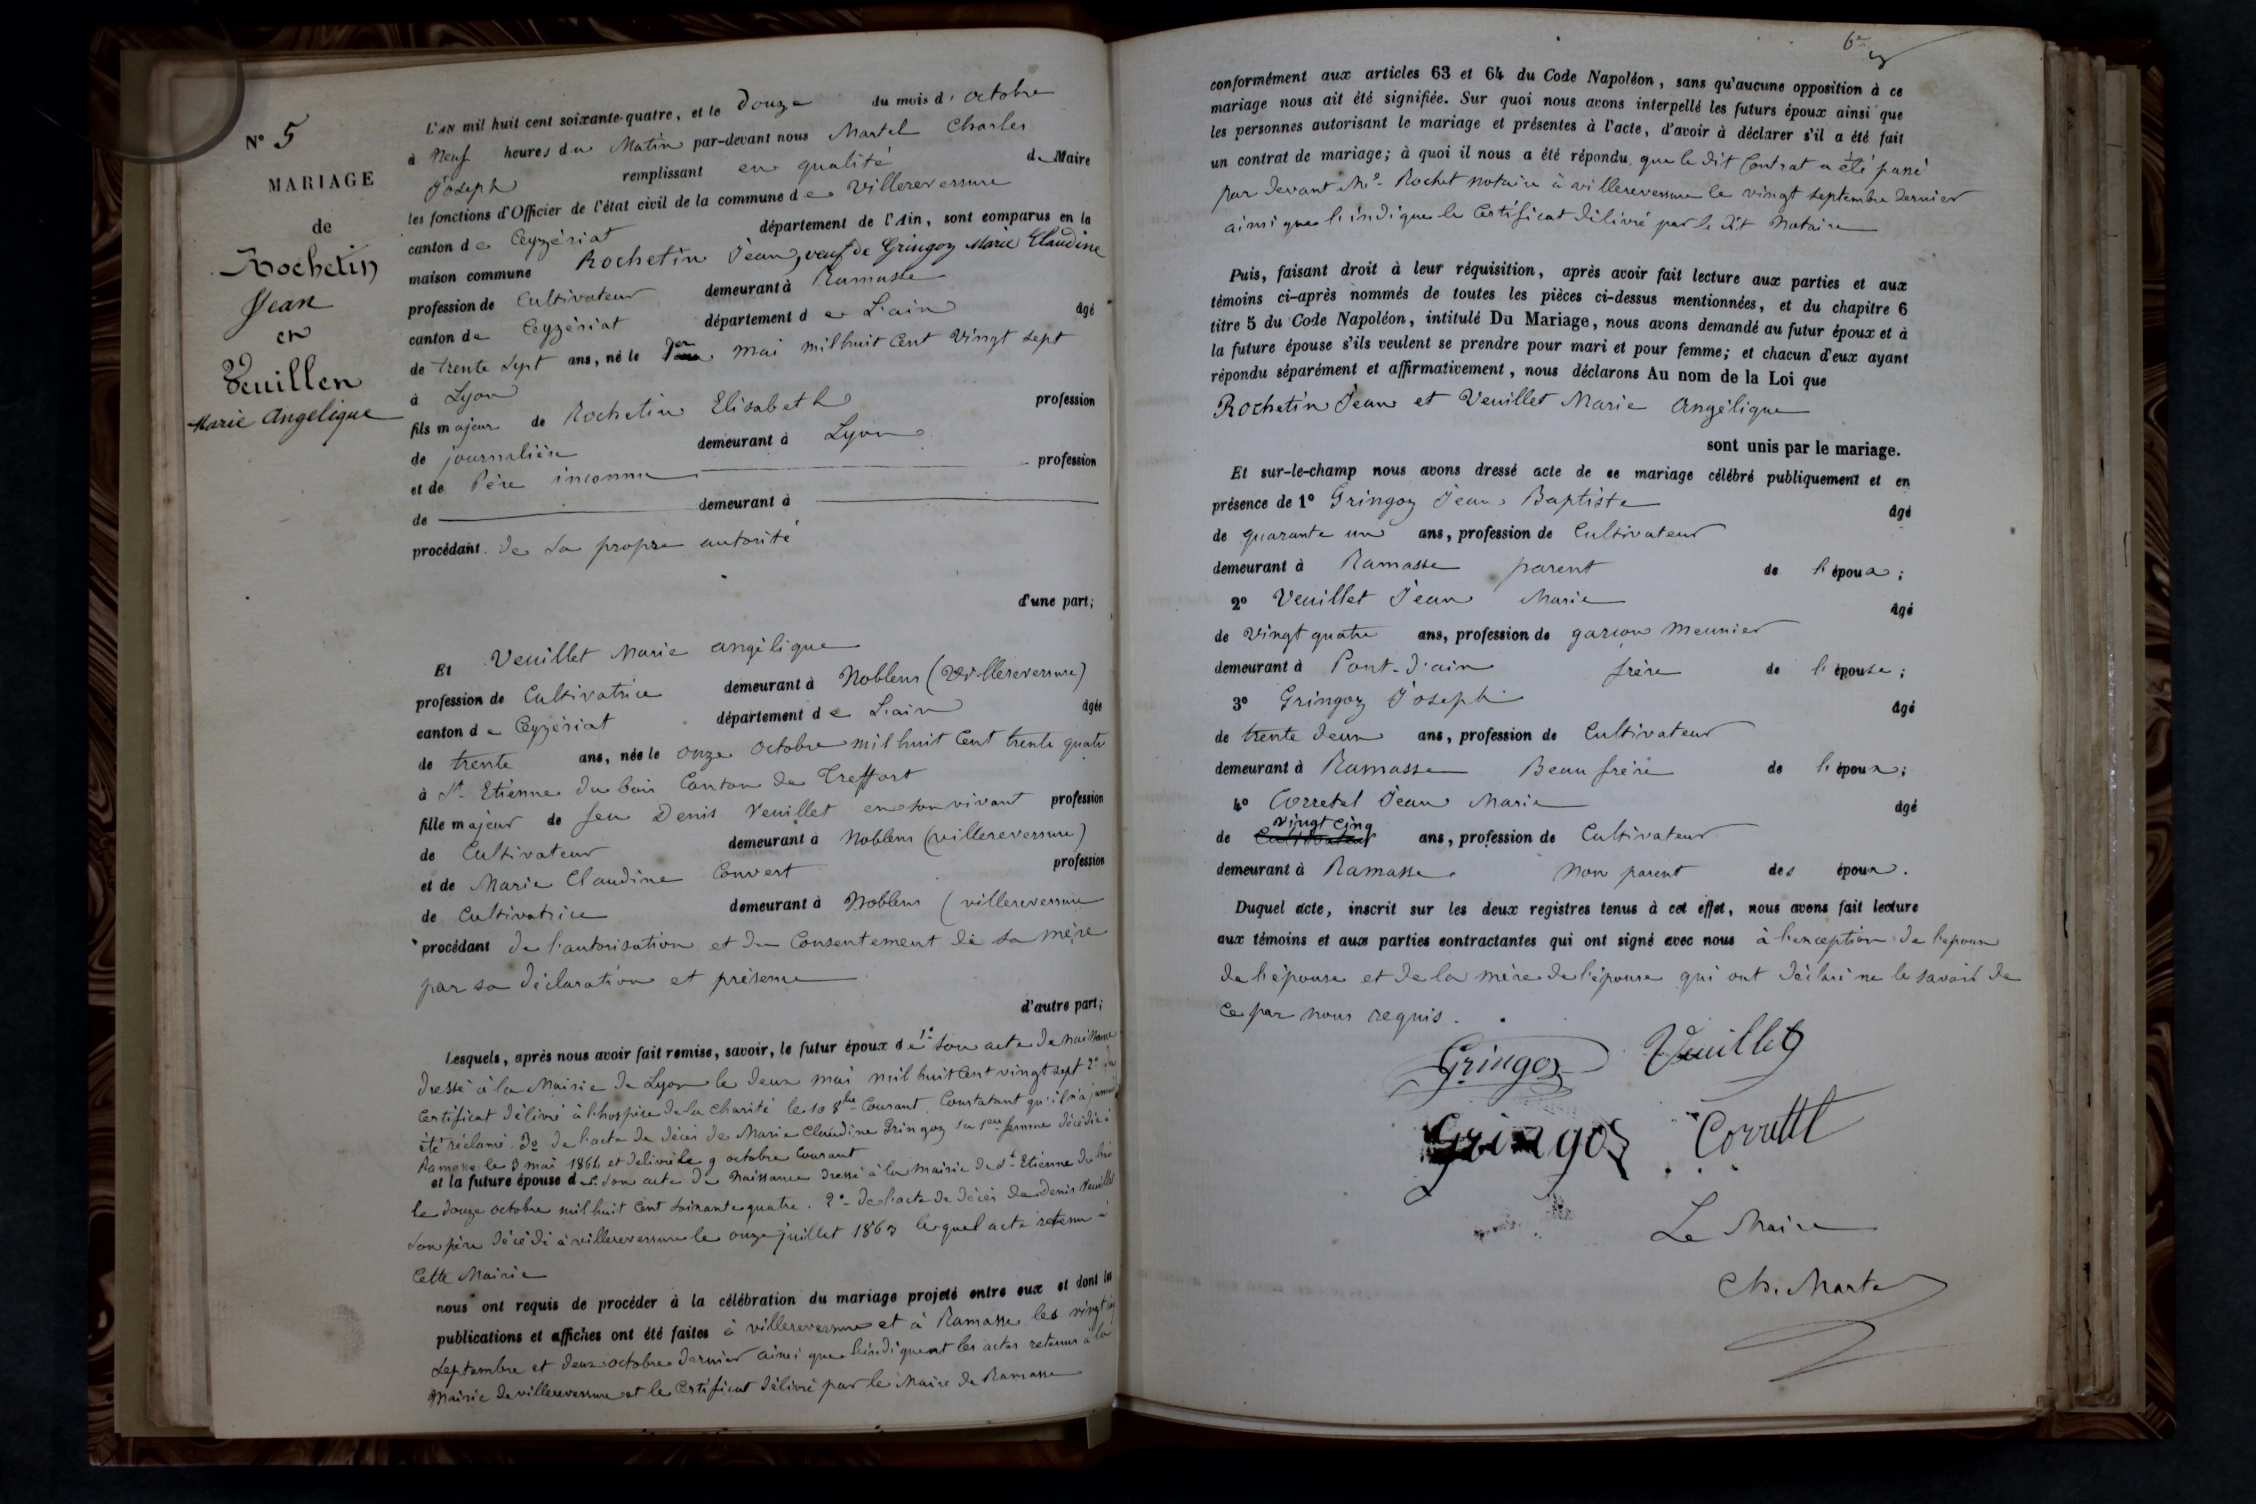 N° 5
MARIAGE
de
Rochetin
Jean
et
Veuillet
Marie Angélique
L'AN mil huit cent soixante-quatre, et le Douze du mois d' octobre
à Neuf heures du Matin par-devant nous Martel Charles
Joseph remplissant en qualité de Maire
les fonctions d'Officier de l'état civil de la commune de Villereversure
canton de Ceyzériat département de l'Ain, sont comparus en la
maison commune Rochetin Jean, veuf de Gringoz Marie Claudine
profession de Cultivateur demeurant à Ramasse
canton de Ceyzériat département de L'ain âgé
de trente sept ans, né le 1er mai mil huit Cent Vingt sept
à Lyon
fils majeur de Rochetin Elisabeth profession
de journalière demeurant à Lyon
et de Père inconnu profession
de demeurant à
procédant de sa propre autorité
d'une part;
Et Veuillet Marie angélique
profession de Cultivatrice demeurant à Noblens (Villereversure)
canton de Ceyzériat département de L'ain âgée
de trente ans, née le onze octobre mil huit Cent trente quatre
à St Etienne du bois Canton de Treffort
fille majeur de feu Denis Veuillet en son vivant profession
de Cultivateur demeurant à Noblens (villereversure)
et de Marie Claudine Convert profession
de Cultivatrice demeurant à Noblens (villereversure
procédant de l'autorisation et du Consentement de sa mère
par sa déclaration et présence
d'autre part;
Lesquels, après nous avoir fait remise, savoir, le futur époux de 1° son acte de naissance
dressé à la Mairie de Lyon le deux mai mil huit Cent vingt sept 2° du
Certificat délivré à l'hospice de la Charité le 10 8bre Courant. Constatant qu'il n'a jamais
été réclamé 3° de l'acte de décès de Marie Claudine Gringoz sa 1ere femme décédée à
Ramasse le 3 mai 1864 et délivré le 9 octobre Courant
et la future épouse de 1° son acte de Naissance dressé à la mairie de St Etienne du bois
le douze octobre mil huit Cent soixante quatre. 2° de l'acte de décès de Denis Veuillet
son père décédé à villereversure le onze juillet 1863 lequel acte retenu à
Cette Mairie
nous ont requis de procéder à la célébration du mariage projeté entre eux et dont les
publications et affiches ont été faites à villereversure et à Ramasse les vingt cinq
septembre et deux octobre dernier ainsi que l'indiquent les actes retenus à la
Mairie de villereversure et le Certificat délivré par le Maire de Ramasse
6
conformément aux articles 63 et 64 du Code Napoléon, sans qu'aucune opposition à ce
mariage nous ait été signifiée. Sur quoi nous avons interpellé les futurs époux ainsi que
les personnes autorisant le mariage et présentes à l'acte, d'avoir à déclarer s'il a été fait
un contrat de mariage; à quoi il nous a été répondu que le dit Contrat a été passé
par devant Me Rochet notaire à villereversure le vingt septembre dernier
ainsi que l'indique le Certificat délivré par le dit Notaire
Puis, faisant droit à leur réquisition, après avoir fait lecture aux parties et aux
témoins ci-après nommés de toutes les pièces ci-dessus mentionnées, et du chapitre 6
titre 5 du Code Napoléon, intitulé Du Mariage, nous avons demandé au futur époux et à
la future épouse s'ils veulent se prendre pour mari et pour femme; et chacun d'eux ayant
répondu séparément et affirmativement, nous déclarons Au nom de la Loi que
Rochetin Jean et Veuillet Marie Angélique
sont unis par le mariage.
Et sur-le-champ nous avons dressé acte de ce mariage célébré publiquement et en
présence de 1° Gringoz Jean Baptiste âgé
de quarante un ans, profession de Cultivateur
demeurant à Ramasse parent de l'époux;
2° Veuillet Jean Marie âgé
de Vingt quatre ans, profession de garçon Meunier
demeurant à Pont-d'ain frère de l'épouse;
3° Gringoz Joseph âgé
de trente deux ans, profession de Cultivateur
demeurant à Ramasse Beau frère de l'époux;
4° Corretel Jean Marie âgé
de Cultivateur vingt cinq ans, profession de Cultivateur
demeurant à Ramasse Non parent des époux.
Duquel acte, inscrit sur les deux registres tenus à cet effet, nous avons fait lecture
aux témoins et aux parties contractantes qui ont signé avec nous à l'exception de l'époux
de l'épouse et de la mère de l'épouse qui ont déclaré ne le savoir de
ce par nous requis.
Gringoz Veuillet
Gringoz Corretel
Le Maire
Ch. Martel